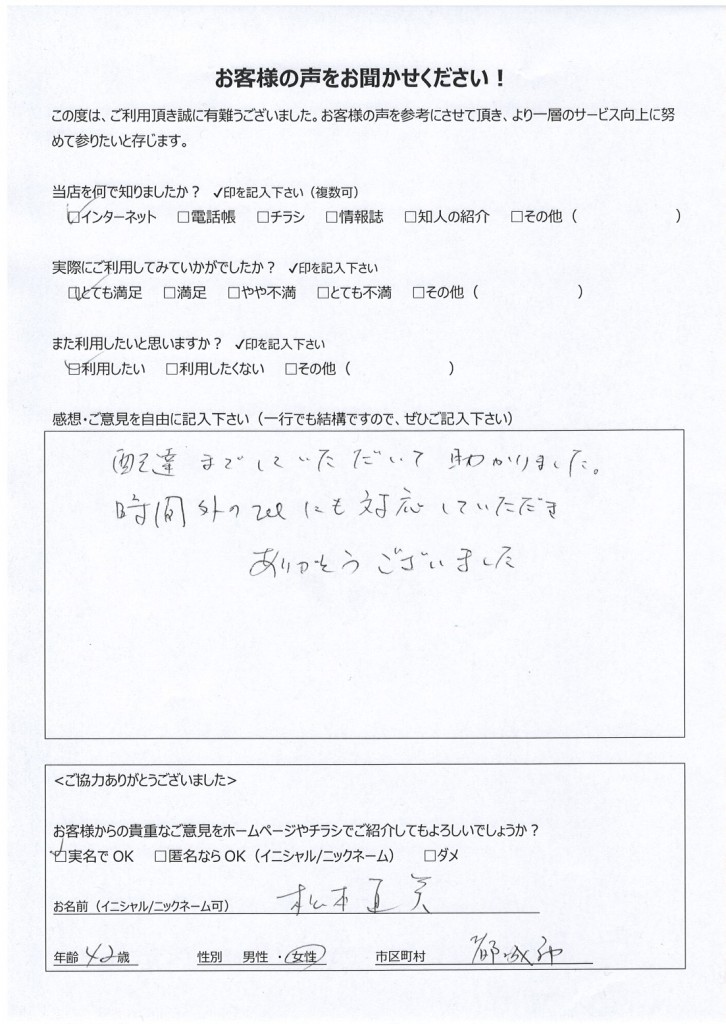 お客様の声をお聞かせください！
この度は、ご利用頂き誠に有難うございました。お客様の声を参考にさせて頂き、より一層のサービス向上に努
めて参りたいと存じます。
当店を何で知りましたか？ ✓印を記入下さい（複数可）
☑インターネット □電話帳 □チラシ □情報誌 □知人の紹介 □その他（ ）
実際にご利用してみていかがでしたか？ ✓印を記入下さい
☑とても満足 □満足 □やや不満 □とても不満 □その他（ ）
また利用したいと思いますか？ ✓印を記入下さい
☑利用したい □利用したくない □その他（ ）
感想・ご意見を自由に記入下さい（一行でも結構ですので、ぜひご記入下さい）
配達までしていただいて助かりました。
時間外のTELにも対応していただき
ありがとうございました
<ご協力ありがとうございました>
お客様からの貴重なご意見をホームページやチラシでご紹介してもよろしいでしょうか？
☑実名でOK □匿名ならOK（イニシャル/ニックネーム） □ダメ
お名前（イニシャル/ニックネーム可） 松本直美
年齢 42歳 性別 男性・女性 市区町村 都城市